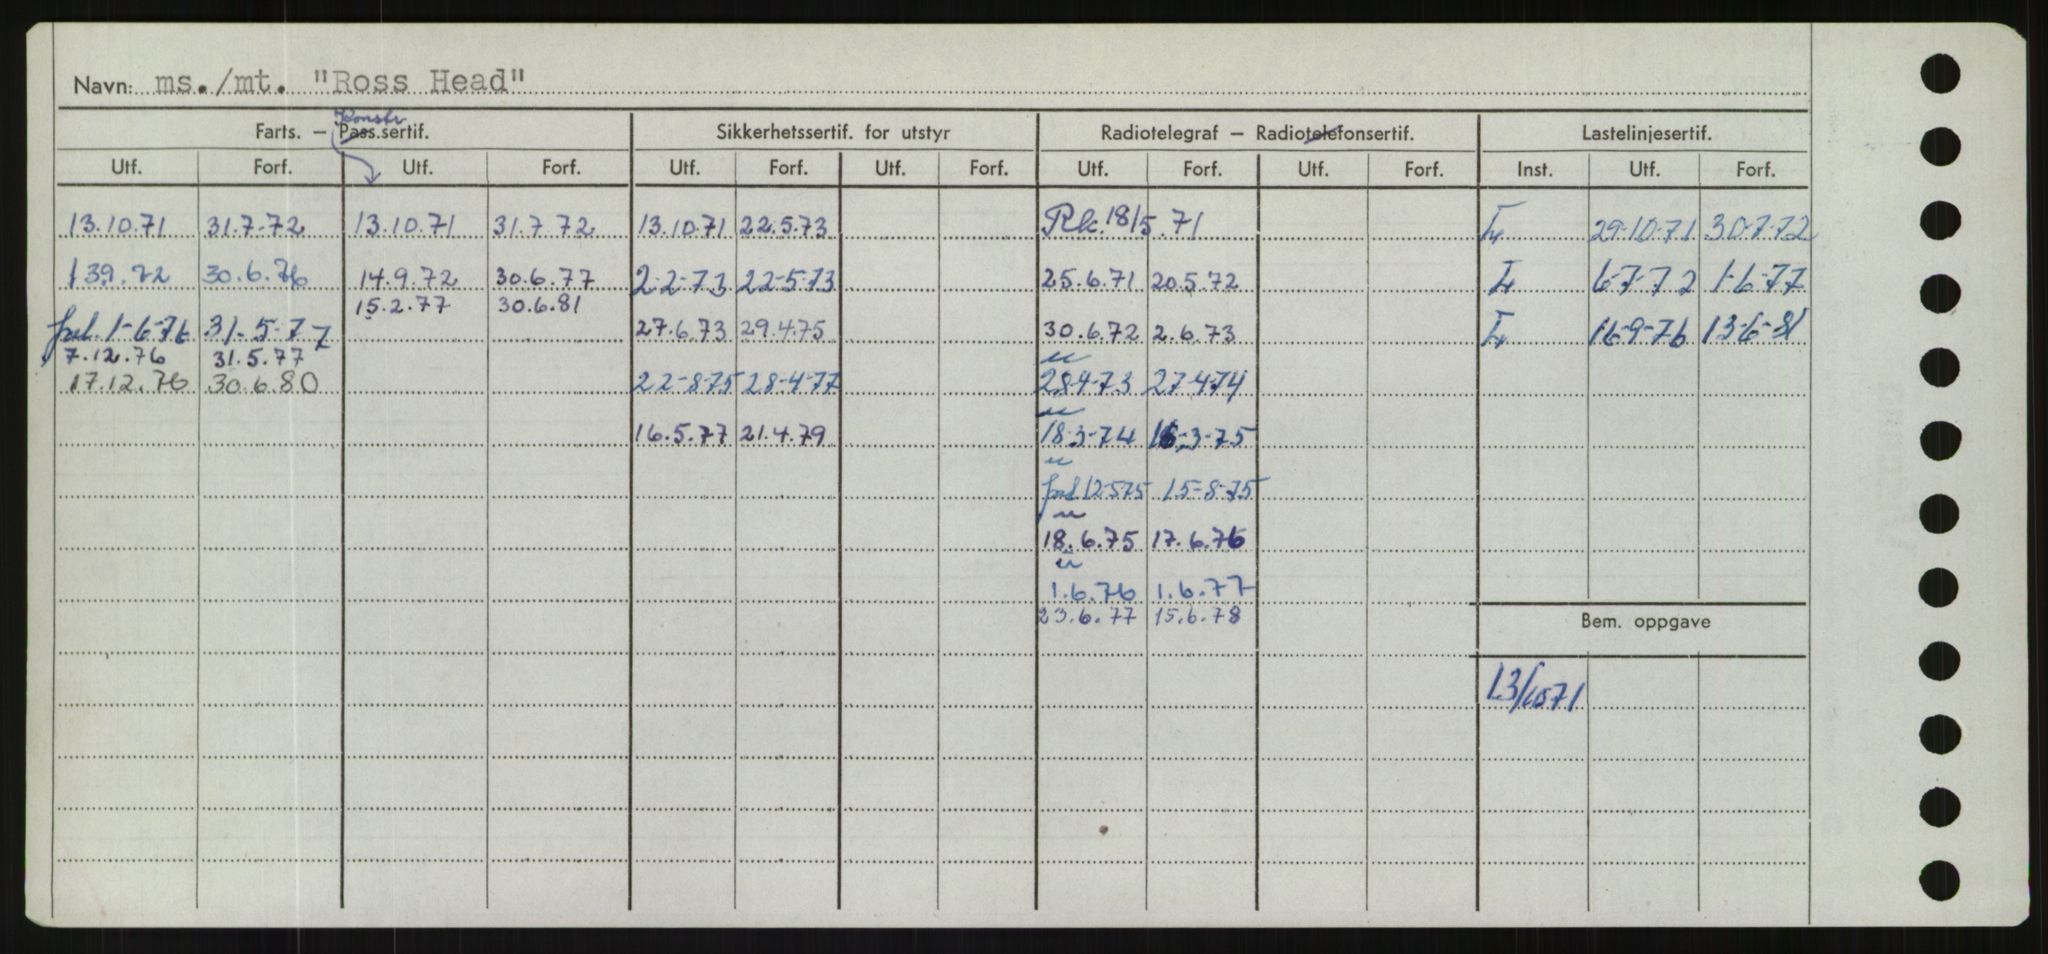 Navn: ms./mt. "Ross Head"
Konstr
Farts. — Pass.sertif. Sikkerhetssertif. for utstyr Radiotelegraf — Radiotelefonsertif. Lastelinjesertif.
Utf. Forf. Utf. Forf. Utf. Forf. Utf. Forf. Utf. Forf. Utf. Forf. Inst. Utf. Forf.
13.10.71 31.7.72 13.10.71 31.7 72 13.10.71 22.5.73 Rk. 18/5.71 29-10-71 30-7-72
139.72 30.6.76 14.9.72 30.6.77 2-2-73 22-5-73 25.6.71 20.5.72 6-7-72 1-6-77
15.2.77 30.6.81
forl. 1-6-76 31-5-77 27.6.73 29.4.75 30.6.72 2.6.73 16-9-76 13-6-81
7.12.76 31.5.77
17.12.76 30.6.80 22-8-75 28-4-77 28-4-73 27-4-74
16.5.77 21.4.79 18-3-74 -3-75
forl 12-5-75 15-8-75
18.6.75 17.6.76
1.6.76 1.6.77
23.6.77 15.6.78
Bem. oppgave
13/1071